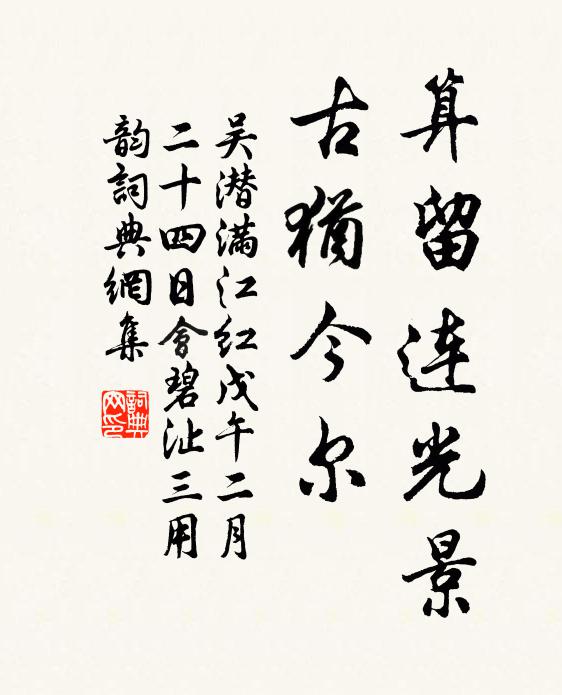 算留连光景
古犹今尔
吴潜满江红戊午二月
二十四日會碧沚三用
韵詞典網集
詞典
网印